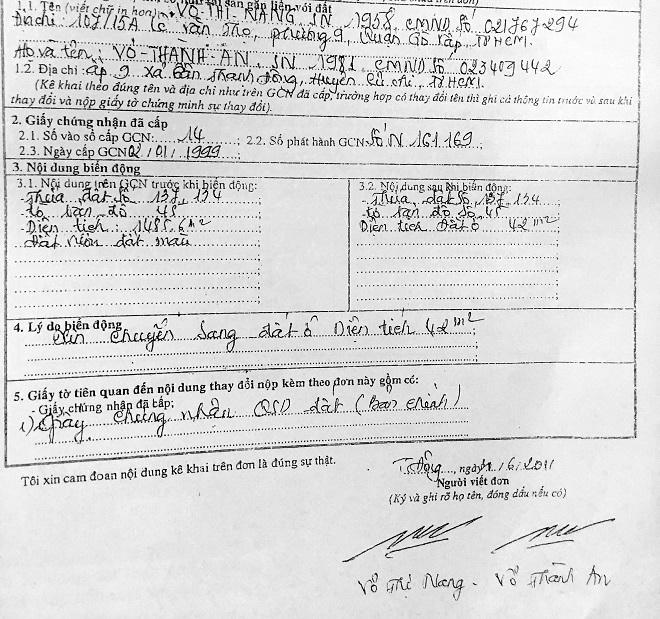 1.1. Tên (viết chữ in hoa): VÕ THỊ NANG SN 1958, CMND Số 021767294
Địa chỉ: 107/15A Lê Văn Thọ, phường 9, Quận Gò Vấp, TPHCM.
Họ và tên: VÕ THÀNH AN, SN 1981 CMND Số 023409442
1.2. Địa chỉ: ấp 9 xã Tân Thạnh Đông, Huyện Củ Chi, TPHCM.
(Kê khai theo đúng tên và địa chỉ như trên GCN đã cấp, trường hợp có thay đổi tên thì ghi cả thông tin trước và sau khi
thay đổi và nộp giấy tờ chứng minh sự thay đổi).
2. Giấy chứng nhận đã cấp
2.1. Số vào sổ cấp GCN: 14 ; 2.2. Số phát hành GCN: Số N 161169 ;
2.3. Ngày cấp GCN 02/01/1999 ;
3. Nội dung biến động
3.1. Nội dung trên GCN trước khi biến động:
- Thửa đất số 137, 134
- tờ bản đồ 45
- Diện tích: 1485,6 m2
Đất
màu
3.2. Nội dung sau khi biến động:
- Thửa đất số 137, 134
- tờ bản đồ số 45
Diện tích Đất ở 42 m2
4. Lý do biến động
Xin chuyển sang đất ở Diện tích 42 m2
5. Giấy tờ liên quan đến nội dung thay đổi nộp kèm theo đơn này gồm có:
- Giấy chứng nhận đã cấp;
1) Giấy chứng nhận QSD đất (Bản chính)
Tôi xin cam đoan nội dung kê khai trên đơn là đúng sự thật.
T. Đông, ngày /6/2011
Người viết đơn
(Ký và ghi rõ họ tên, đóng dấu nếu có)
Võ Thị Nang - Võ Thành An